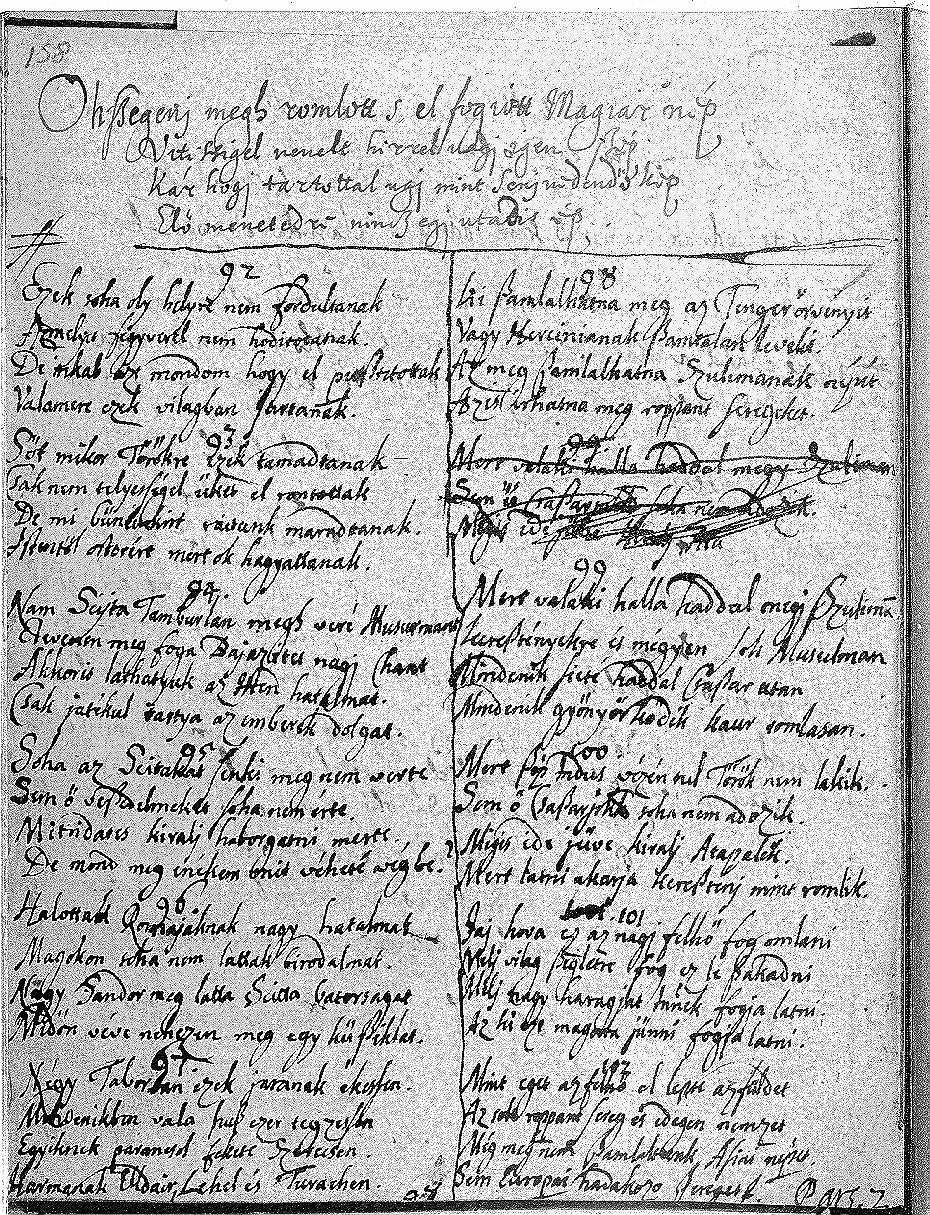 158
Oh szegenj megh romlott s el fogiott Magiar nép
Vitézséggel nevelt hirrel
Kár hogj tartottal ugj mint
Elö menetedre nincz egj utadis ép.
92
Ezek soha oly helyre nem fordultanak
fegyverël nem hoditottanak.
De inkab azt mondom hogy el pusztitottak
Valamere ezek vilagban jartanak.
93
Söt mikor Törökre Ezek tamadtanak
Csak nem telyességel üket el rontottak
De mi bününkért maradtanak.
Istentöl ostorért mert ök hagyattanak.
94.
Nam Scÿta Tamburlan megh veré Musurmant
meg foga Bajazetes nagj Chant
Akkoris lathatyuk az Isten hatalmat.
Csak játékul tartya az emberek dolgat.
95
Soha az Scitakat senki meg nem verte
Sem ö veszedelmeket soha nem érte.
Mitridates kiralj haborgatni merte.
De mond meg énékem mit véheté végbe?
96
Halottak Romajaknak nagy hatalmat
Magokon soha nem lattak birodalmat.
Nagy Sandor meg latta Scitta batorsagat
Midön véve nehezen meg egy küsziklat.
97
Négy Taborban ezek jaranak ekessen.
Mindenikben vala husz ezer tegzessen
Egyiknek parancsol fekete Szerecsen.
Harmanak Uldair, Lehel és Turachen.
98
Ki szamlalhatna meg az Tenger örvényit
Vagy Herciniának szamtalan levelit.
Az meg szamlalhatna Szulimanak népét
Azis irhatna meg roppant sereghet.
99
Mert valaki halla haddal megy Szuliman
Sem ö Csaszarjoknak soha nem adozik.
Mégis ide jüve
99
Mert valaki halla haddal megj Szulimã
keresztényekre és mégyen sok Musulman
Mindenik siete haddal Csaszar utan
Mindenik gyönyörködik kaur romlasan.
100
Mert vizén tul Török nem lakik.
Sem ö Csaszarjokk soha nem adozik.
Mégis ide jüve kiralj
Mert latni akarja kereszteny mint romlik.
101
Jaj hova ez az nagj felhö fog omlani
Melj vilag szegletre fog ez le szakadni
Melj nagy haragjat Istnek fogja latni.
Az ki ezt magara jünni fogja latni.
102
Mint eget az felhö el lepte az földet
Az sok roppant sereg és idegen nemzet
Még meg nem szamlaltunk Asiai népet
Sem Europai hadakozo sereget.
Pars. 2.